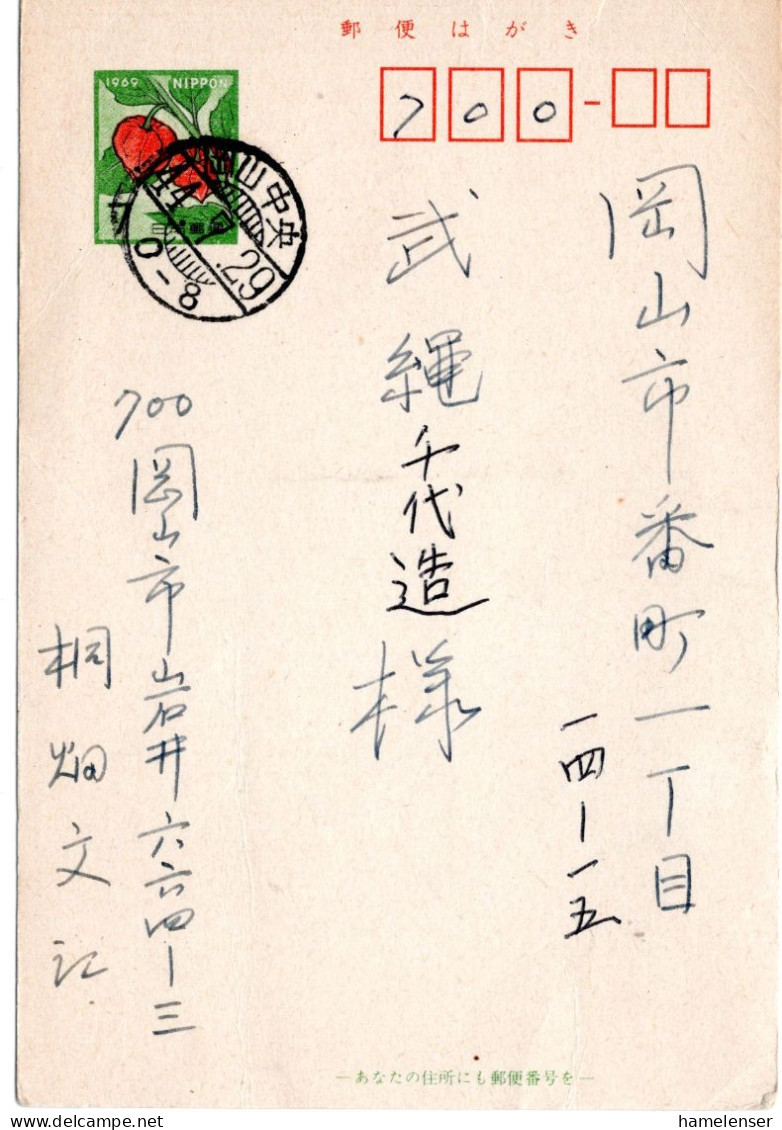 郵便はがき
1969 NIPPON
日本郵便
700-
岡山中央
44.7.29
0-8
岡山市番町一丁目
一四ー一五
武縄千代造様
700
岡山市岩井六六四ー三
桐畑文記
—あなたの住所にも郵便番号を—
hamelenser